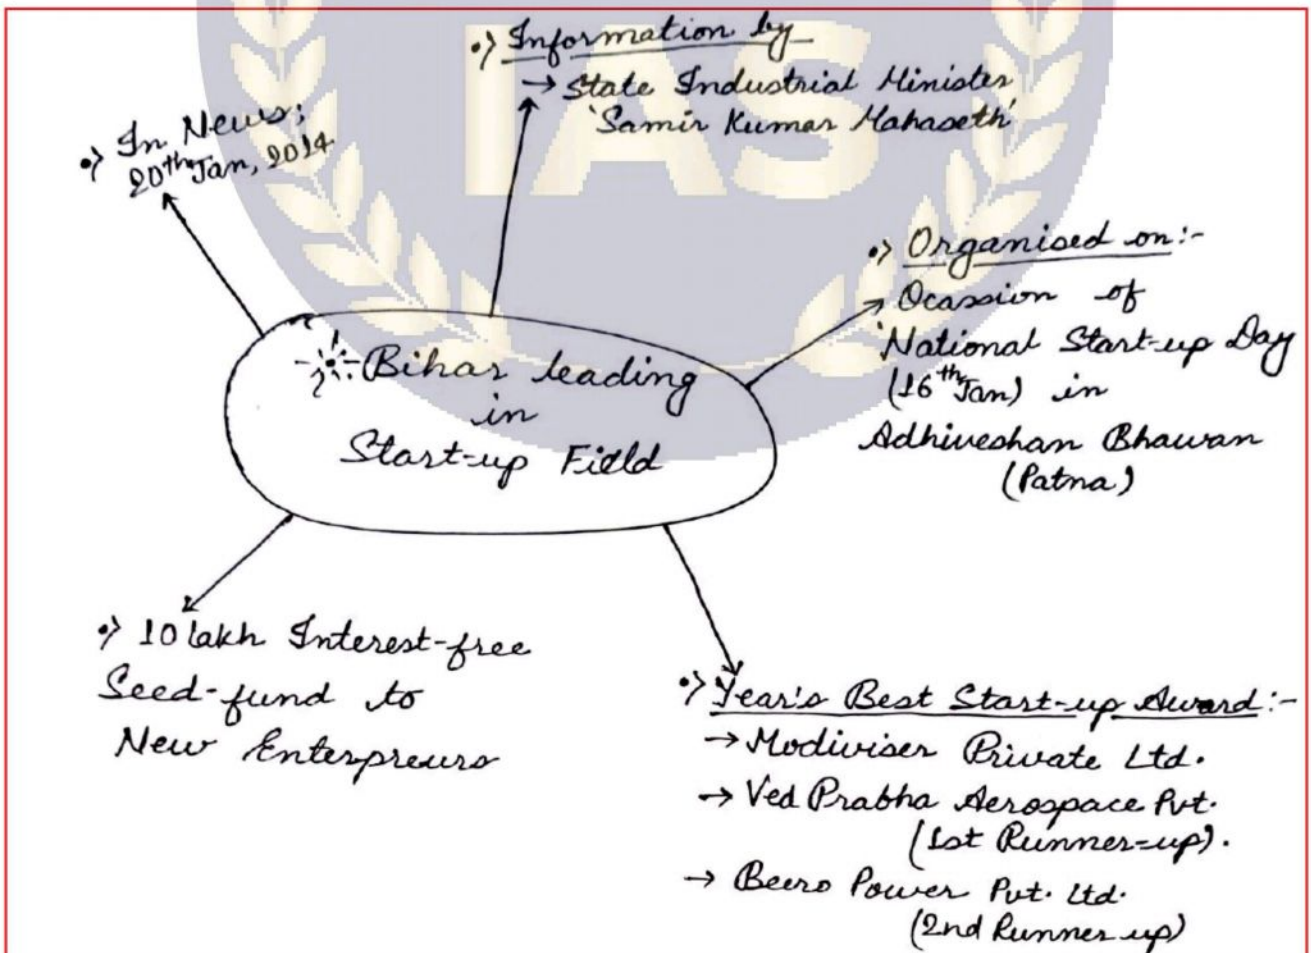 IAS
•) Information by
→ State Industrial Minister
'Samir Kumar Mahaseth'
•) In News;
20th Jan, 2014
•) Organised on:-
→ Ocassion of
'National Start-up Day
(16th Jan) in
Adhiveshan Bhawan
(Patna)
Bihar leading
in
Start-up Field
•) 10 lakh Interest-free
Seed-fund to
New Enterpreurs
•) Year's Best Start-up Award:-
→ Modiviser Private Ltd.
→ Ved Prabha Aerospace Pvt.
(1st Runner-up).
→ Beero Power Pvt. Ltd.
(2nd Runner up)